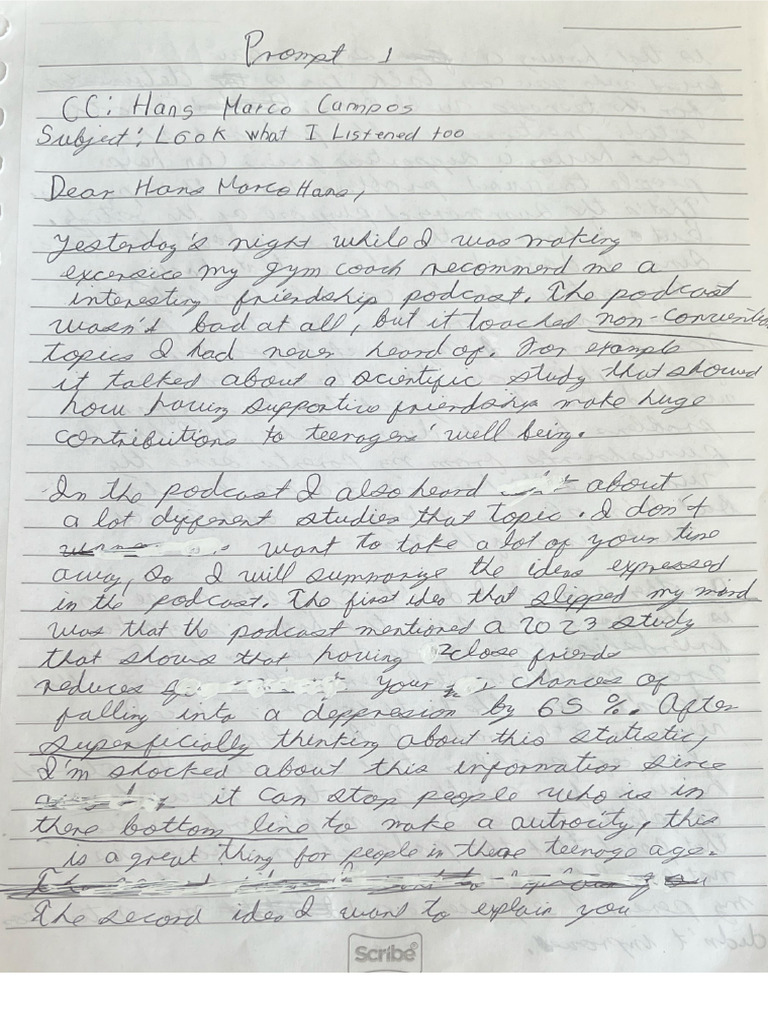 Prompt 1
CC: Hans Marco Campos
Subject: Look what I Listened too
Dear Hans Marco Hans,
Yesterday's night while I was making
excersice my gym coach recommend me a
interesting friendship podcast. The podcast
wasn't bad at all, but it touched non-convention
topics I had never heard of. For example
it talked about a scientific study that showed
how having supportive friendships make huge
contributions to teenagers' well being.
In the podcast I also heard about
a lot different studies that topic. I don't
want to take a lot of your time
away, so I will summarize the ideas expressed
in the podcast. The first idea that slipped my mind
was that the podcast mentioned a 2023 study
that shows that having 2 close friends
reduces your chances of
falling into a deppresion by 65 %. After
superficially thinking about this statistic,
I'm shocked about this information since
it can stop people who is in
there bottom line to make a autrocity, this
is a great thing for people in there teenage age.
The second idea I want to explain you
Scribe